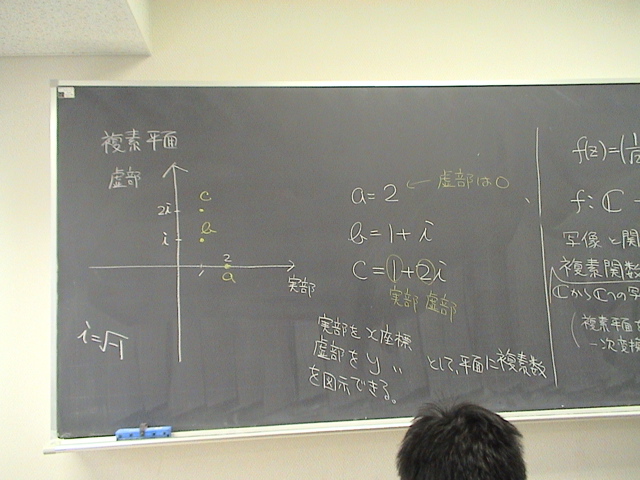 複素平面
虚部
c
2i
b
i
2
1
a
実部
i=√-1
a=2 ← 虚部は0
b=1+i
c=1+2i
実部 虚部
実部をx座標
虚部をy 〃 として、平面に複素数
を図示できる。
f(z)=(
f: ℂ
写像と関
複素関数
ℂからℂへの写
(複素平面
一次変換